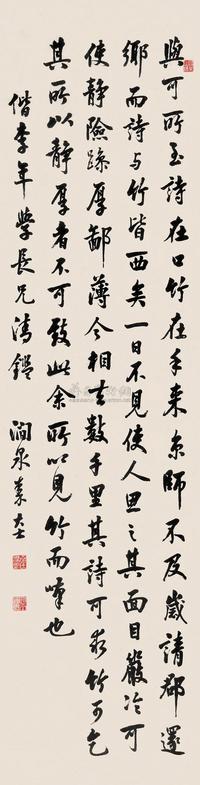 與可所至詩在口竹在手来京師不及歲請郡還
鄉而詩与竹皆西矣一日不見使人思之其面目嚴冷可
使静險躁厚鄙薄今相去數千里其詩可求竹可乞
其所以静厚者不可致此余所以見竹而嘆也
偕李年學長兄清鑑 澗泉秦大士